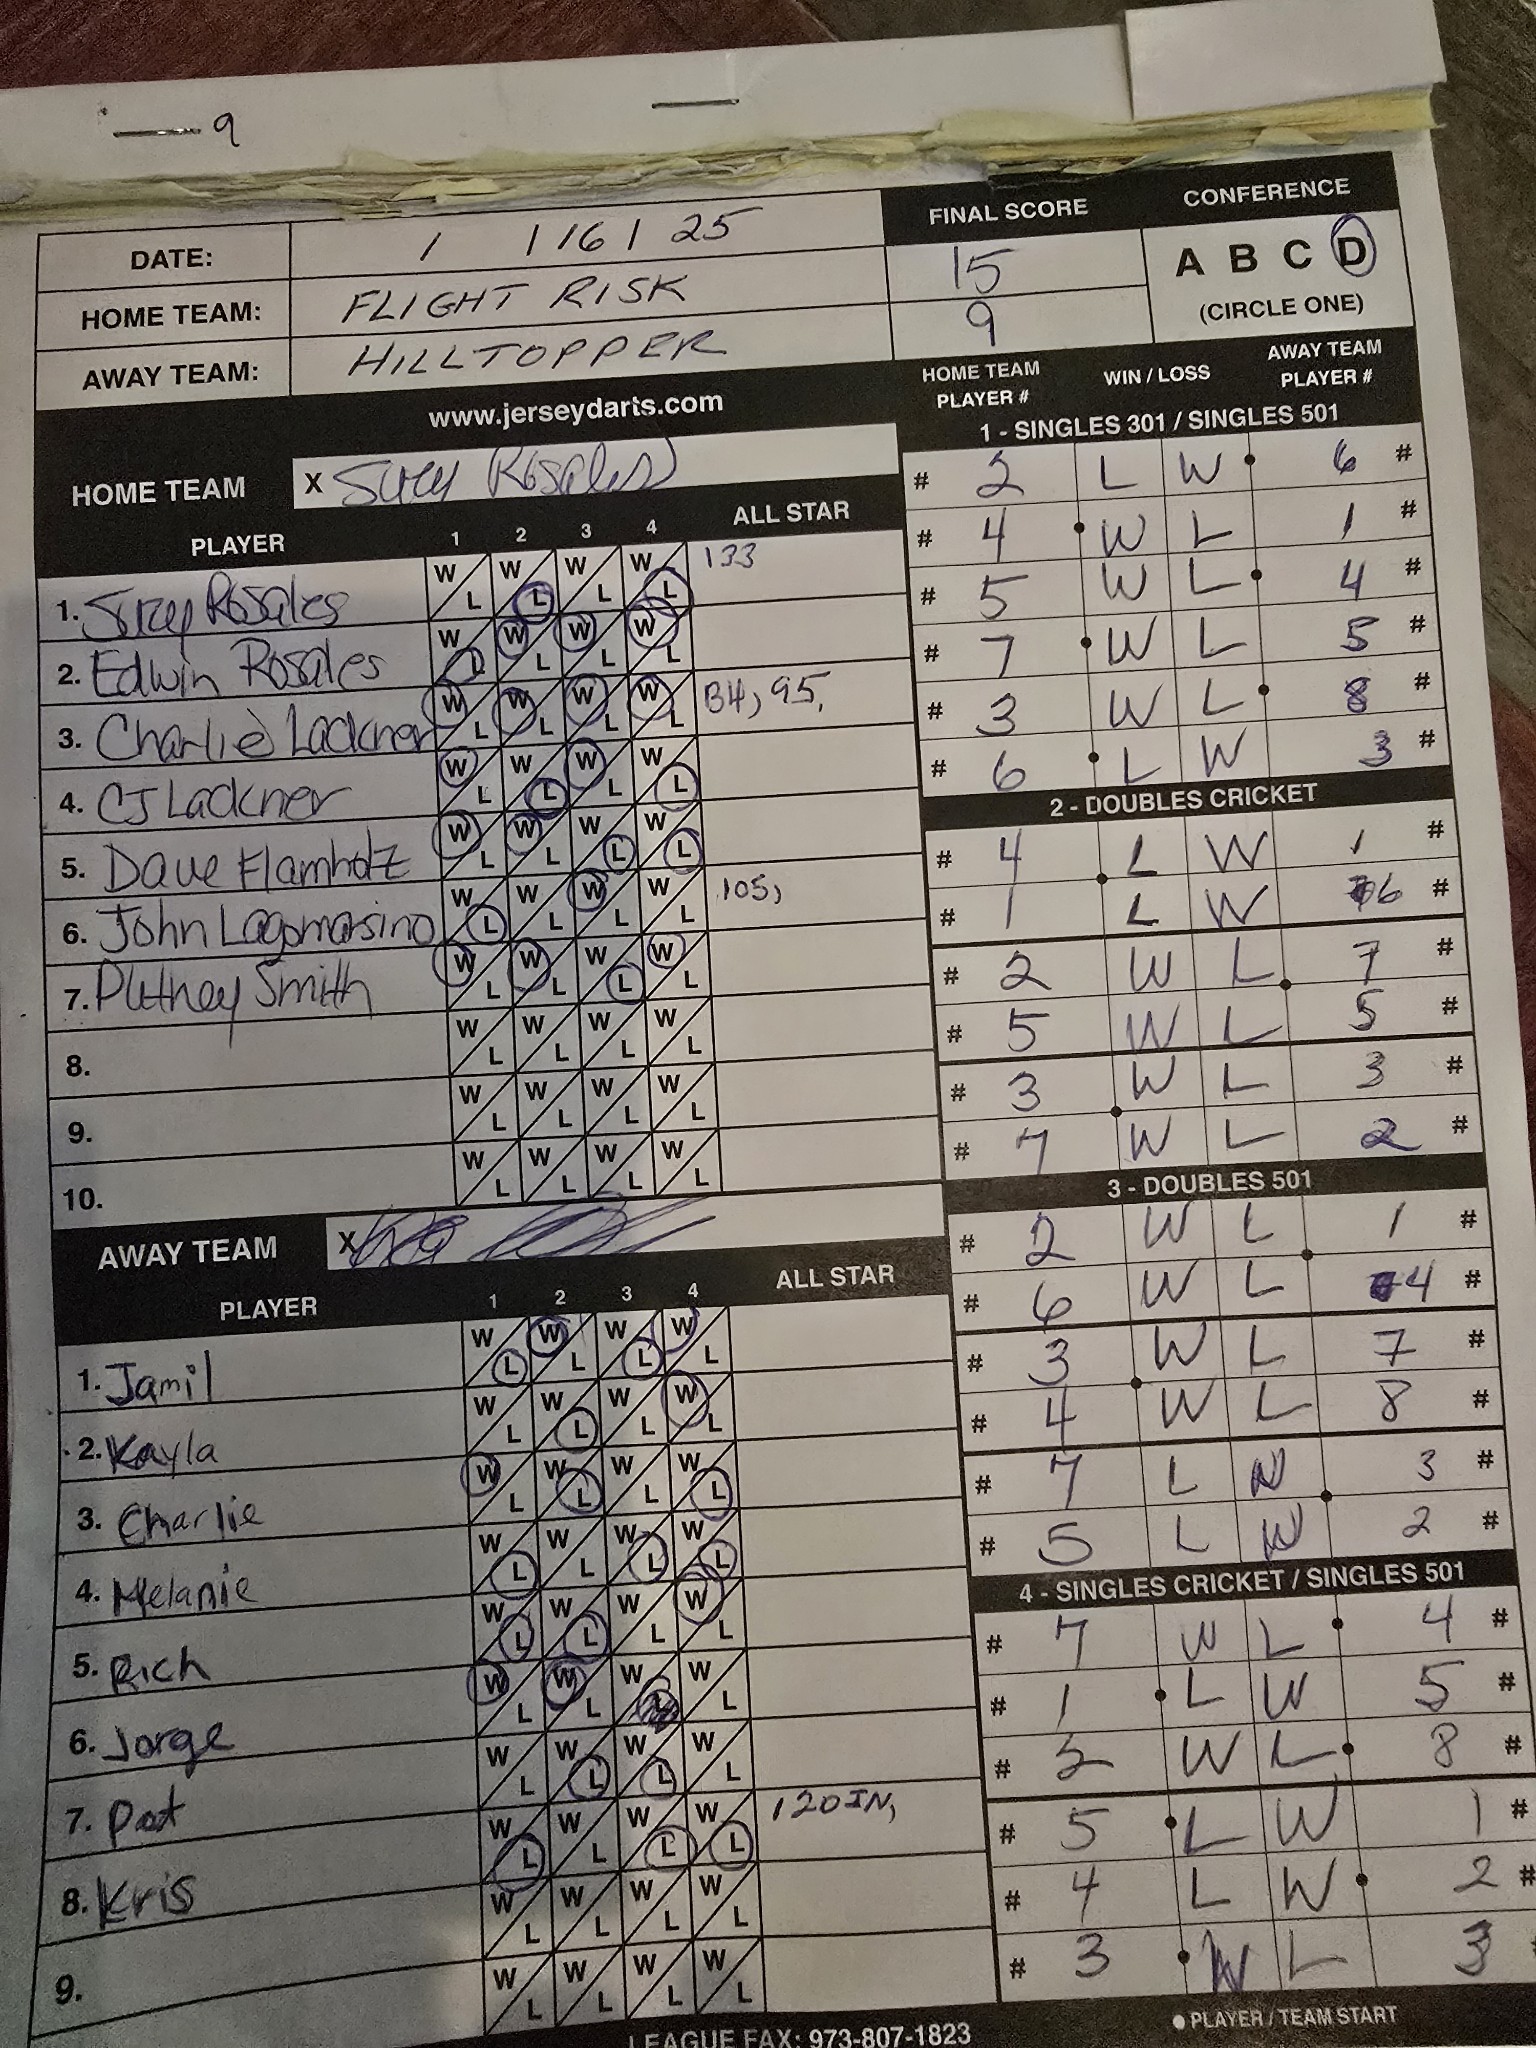 9
DATE: 1 / 16 / 25
HOME TEAM: FLIGHT RISK
AWAY TEAM: HILLTOPPER
FINAL SCORE
15
9
CONFERENCE
A B C D
(CIRCLE ONE)
www.jerseydarts.com
HOME TEAM X Suzy Rosales
PLAYER 1 2 3 4 ALL STAR
1. Suzy Rosales W L W L W L W L 133
2. Edwin Rosales W L W L W L W L
3. Charlie Lackner W L W L W L W L 134, 95,
4. CJ Lackner W L W L W L W L
5. Dave Flamholz W L W L W L W L
6. John Lagomarsino W L W L W L W L 105,
7. Putney Smith W L W L W L W L
8. W L W L W L W L
9. W L W L W L W L
10. W L W L W L W L
AWAY TEAM X
PLAYER 1 2 3 4 ALL STAR
1. Jamil W L W L W L W L
2. Kayla W L W L W L W L
3. Charlie W L W L W L W L
4. Melanie W L W L W L W L
5. Rich W L W L W L W L
6. Jorge W L W L W L W L
7. Pat W L W L W L W L
8. Kris W L W L W L W L 120 IN,
9. W L W L W L W L
W L W L W L W L
HOME TEAM PLAYER # WIN / LOSS AWAY TEAM PLAYER #
1 - SINGLES 301 / SINGLES 501
# 2 L W 6 #
# 4 W L 1 #
# 5 W L 4 #
# 7 W L 5 #
# 3 W L 8 #
# 6 L W 3 #
2 - DOUBLES CRICKET
# 4 L W 1 #
# 1 L W 6 #
# 2 W L 7 #
# 5 W L 5 #
# 3 W L 3 #
# 7 W L 2 #
3 - DOUBLES 501
# 2 W L 1 #
# 6 W L 4 #
# 3 W L 7 #
# 4 W L 8 #
# 7 L W 3 #
# 5 L W 2 #
4 - SINGLES CRICKET / SINGLES 501
# 7 W L 4 #
# 1 L W 5 #
# 2 W L 8 #
# 5 L W 1 #
# 4 L W 2 #
# 3 W L 3
LEAGUE FAX: 973-807-1823
● PLAYER / TEAM START